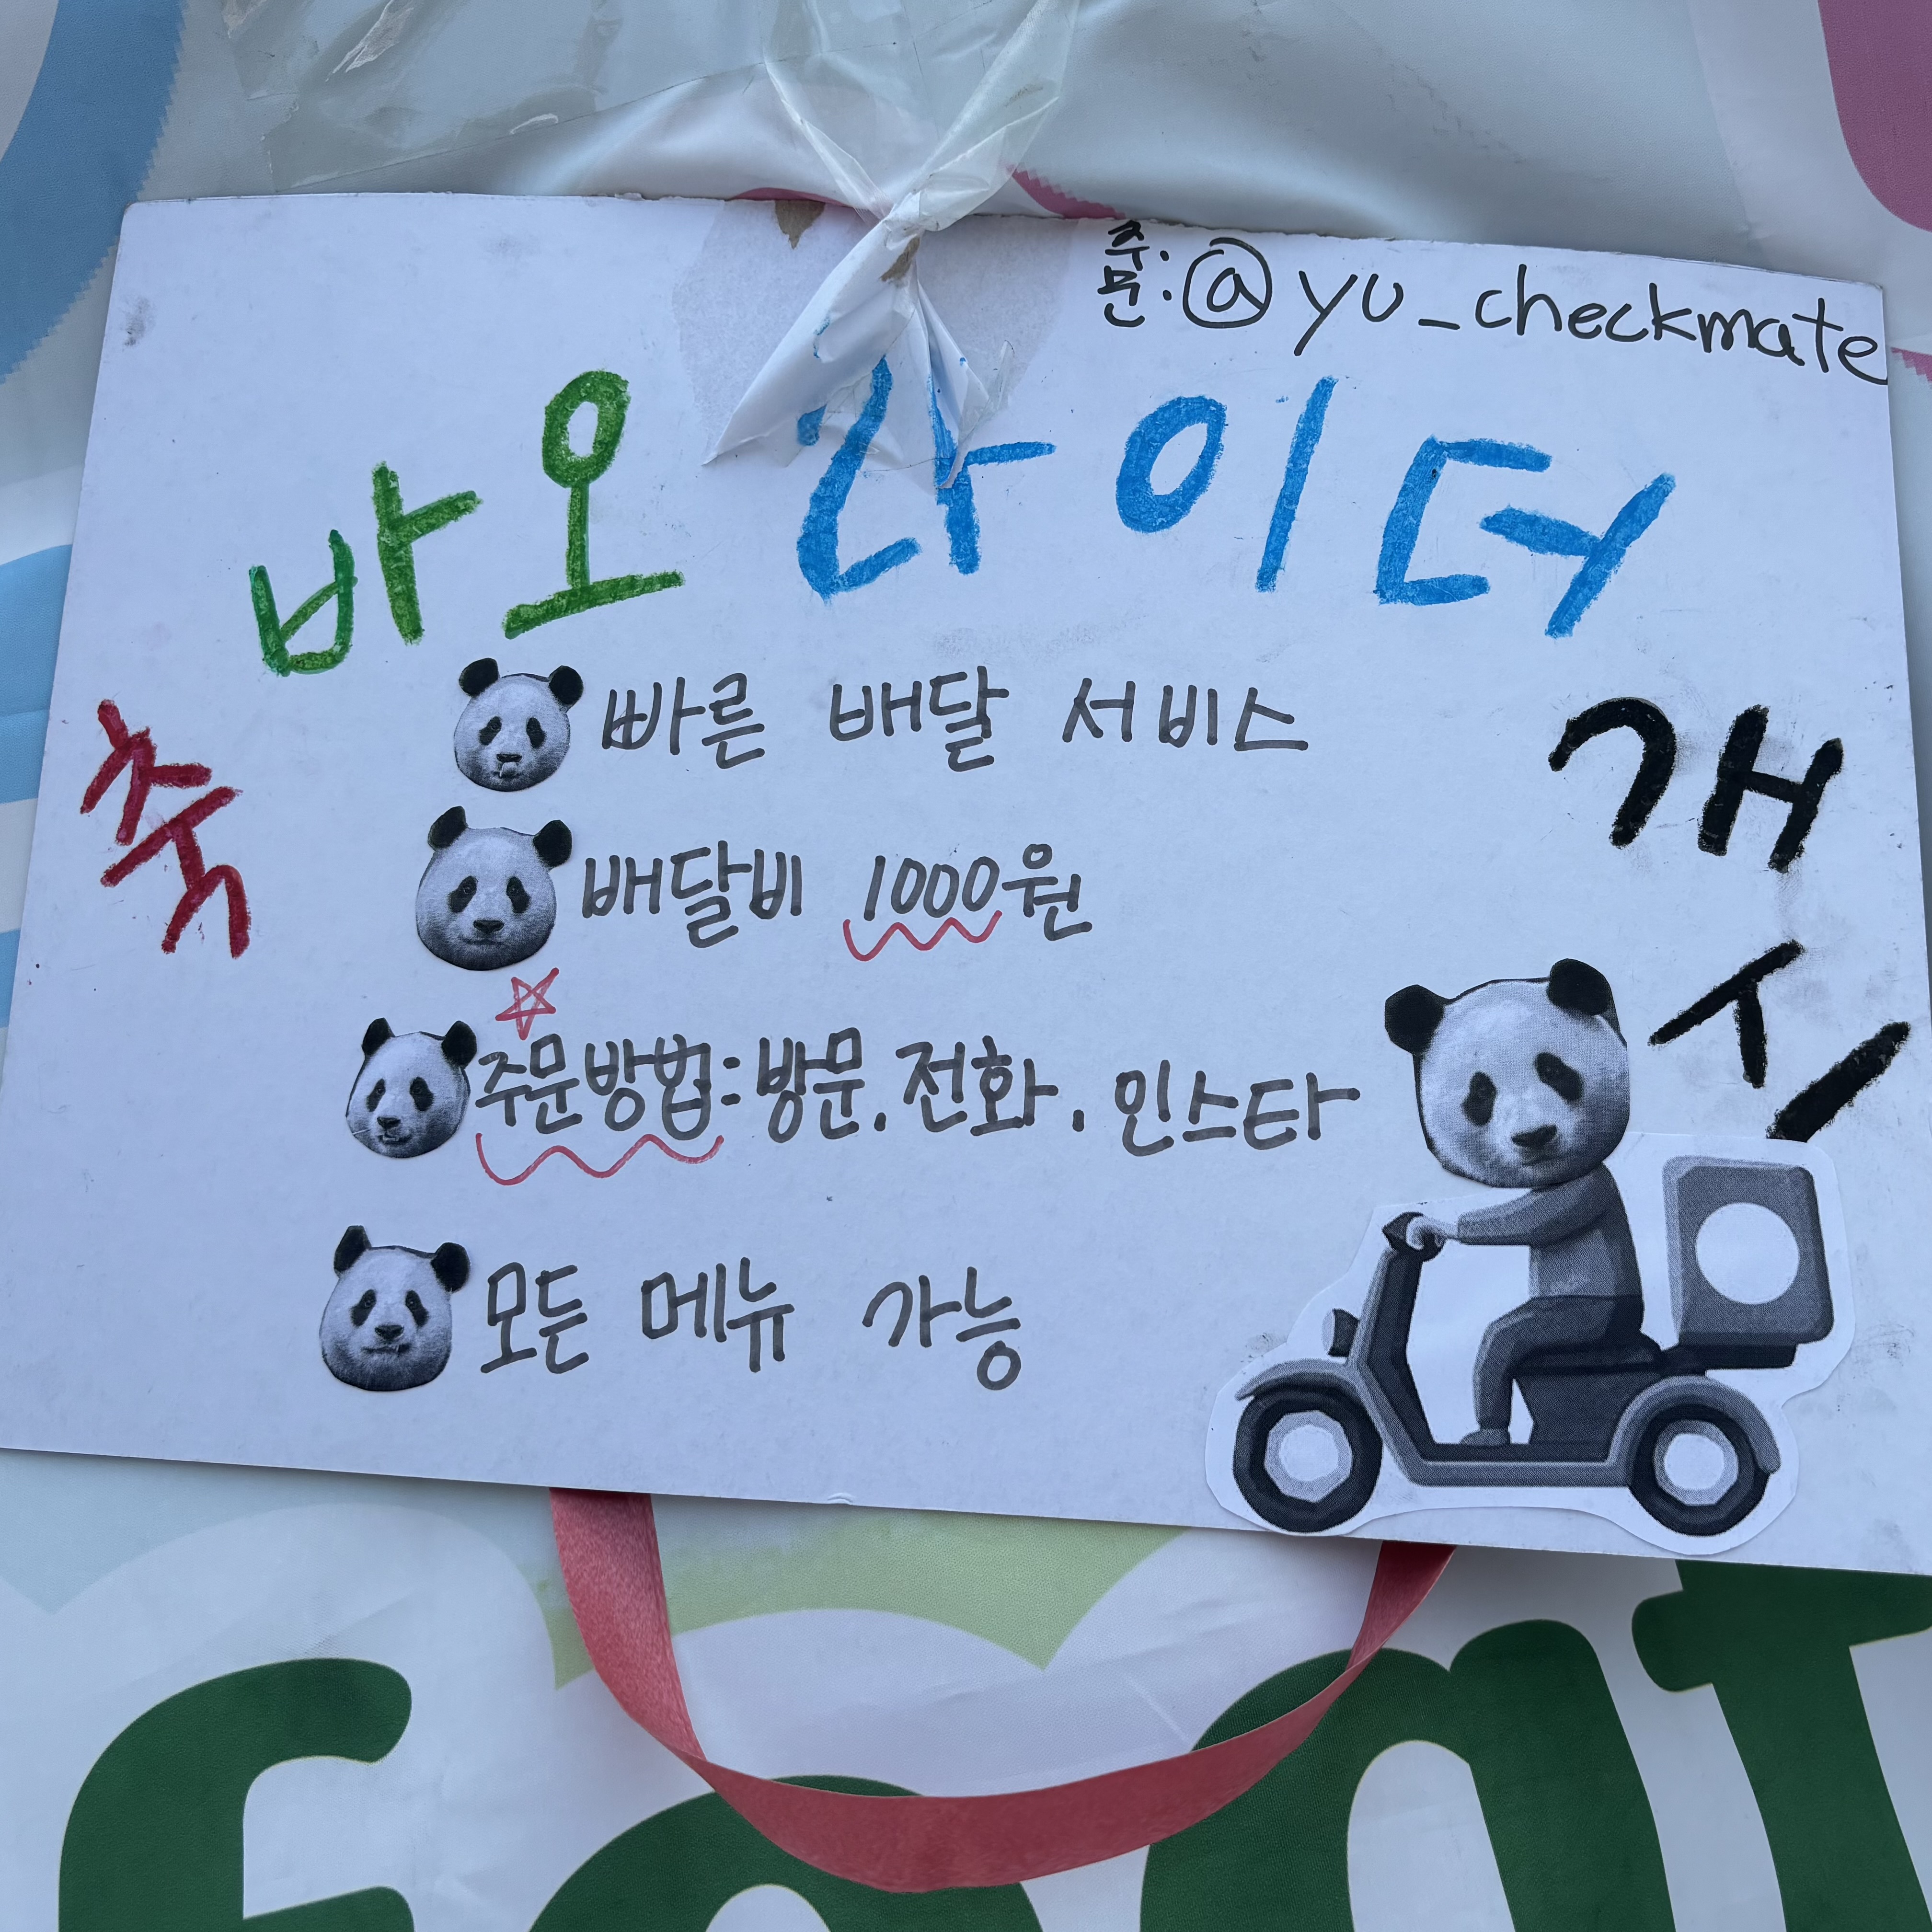 주문: @yu_checkmate
바오 라이더
축
개시
빠른 배달 서비스
배달비 1000원
주문방법: 방문. 전화. 인스타
모든 메뉴 가능